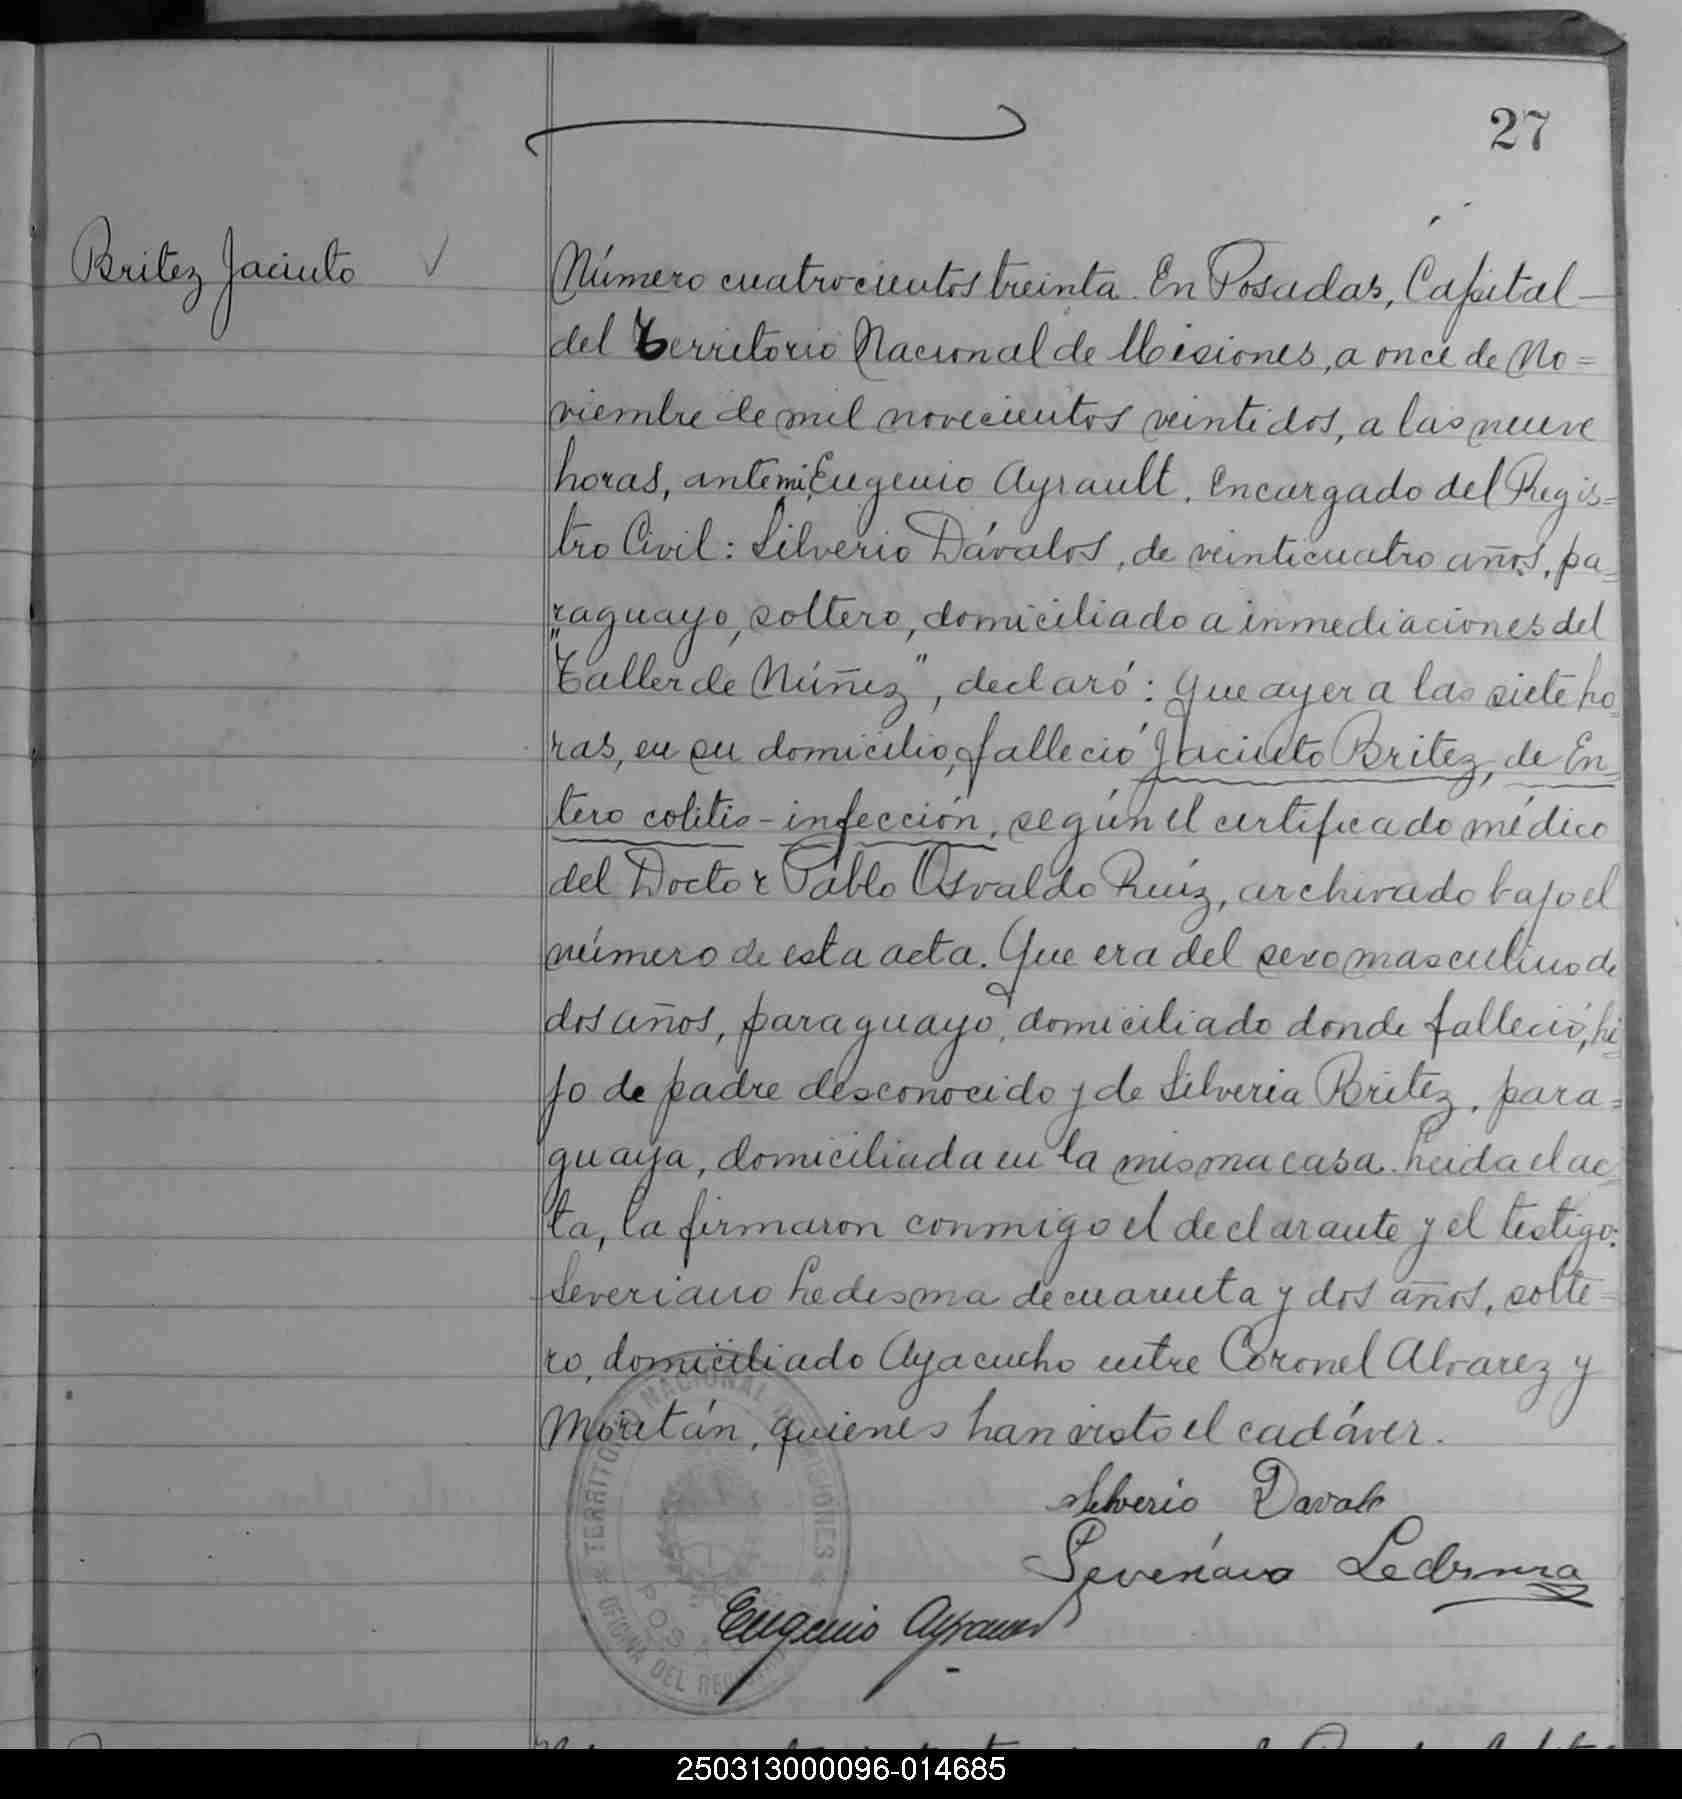 27
Britez Jacinto
Número cuatrocientos treinta. En Posadas, Capital
del Territorio Nacional de Misiones, a once de No=
viembre de mil novecientos veintidos, a las nueve
horas, ante mi, Eugenio Ayrault, Encargado del Regis=
tro Civil: Silverio Dávalos, de veinticuatro años, pa=
raguayo, soltero, domiciliado a inmediaciones del
"Taller de Núñez", declaró: Que ayer a las siete ho
ras, en su domicilio, falleció Jacinto Britez, de En=
tero colitis - infección, según el certificado médico
del Doctor Pablo Osvaldo Ruíz, archivado bajo el
número de esta acta. Que era del sexo masculino de
dos años, paraguayo, domiciliado donde falleció, hi=
jo de padre desconocido y de Silveria Britez, para=
guaya, domiciliada en la misma casa. Leida el ac
ta, la firmaron conmigo el declarante y el testigo:
Severiano Ledesma de cuarenta y dos años, solte=
ro, domiciliado Ayacucho entre Coronel Alvarez y
Moritán, quienes han visto el cadáver.
Silverio Davalo
Severiano Ledesma
Eugenio Ayrault
TERRITORIO NACIONAL DE MISIONES
OFICINA DEL
250313000096-014685